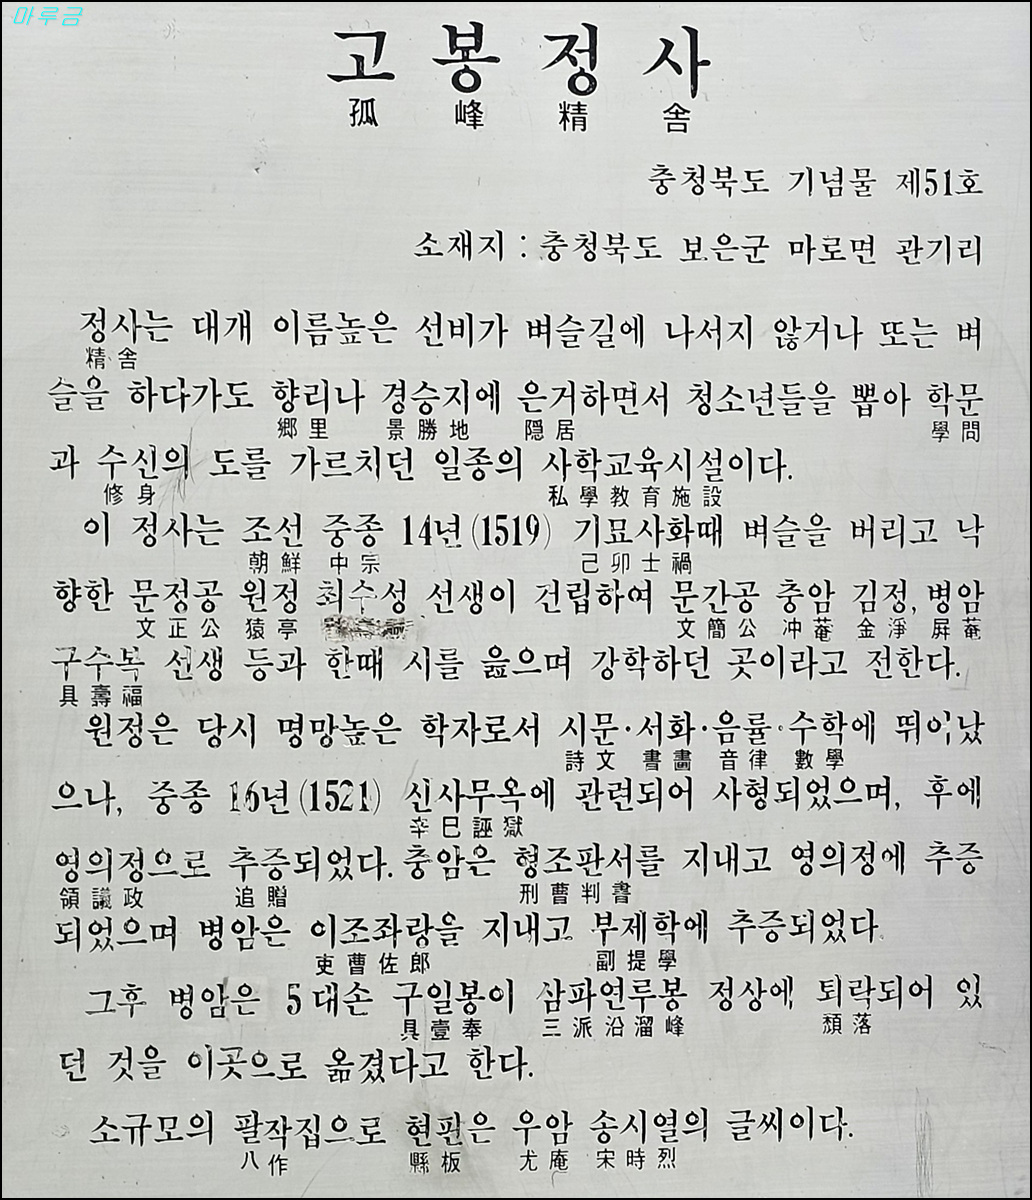 마루금
고봉정사
孤峰精舍
충청북도 기념물 제51호
소재지 : 충청북도 보은군 마로면 관기리
정사는 대개 이름높은 선비가 벼슬길에 나서지 않거나 또는 벼
精舍
슬을 하다가도 향리나 경승지에 은거하면서 청소년들을 뽑아 학문
鄕里 景勝地 隱居 學問
과 수신의 도를 가르치던 일종의 사학교육시설이다.
修身 私學敎育施設
이 정사는 조선 중종 14년(1519) 기묘사화때 벼슬을 버리고 낙
朝鮮 中宗 己卯士禍
향한 문정공 원정 최수성 선생이 건립하여 문간공 충암 김정, 병암
文正公 猿亭 文簡公 冲菴 金淨 屛菴
구수복 선생 등과 한때 시를 읊으며 강학하던 곳이라고 전한다.
具壽福
원정은 당시 명망높은 학자로서 시문·서화·음률·수학에 뛰어났
詩文 書畵 音律 數學
으나, 중종 16년(1521) 신사무옥에 관련되어 사형되었으며, 후에
辛巳誣獄
영의정으로 추증되었다. 충암은 형조판서를 지내고 영의정에 추증
領議政 追贈 刑曹判書
되었으며 병암은 이조좌랑을 지내고 부제학에 추증되었다.
吏曹佐郎 副提學
그후 병암은 5대손 구일봉이 삼파연류봉 정상에 퇴락되어 있
具壹奉 三派沿溜峰 頹落
던 것을 이곳으로 옮겼다고 한다.
소규모의 팔작집으로 현판은 우암 송시열의 글씨이다.
八作 縣板 尤庵 宋時烈